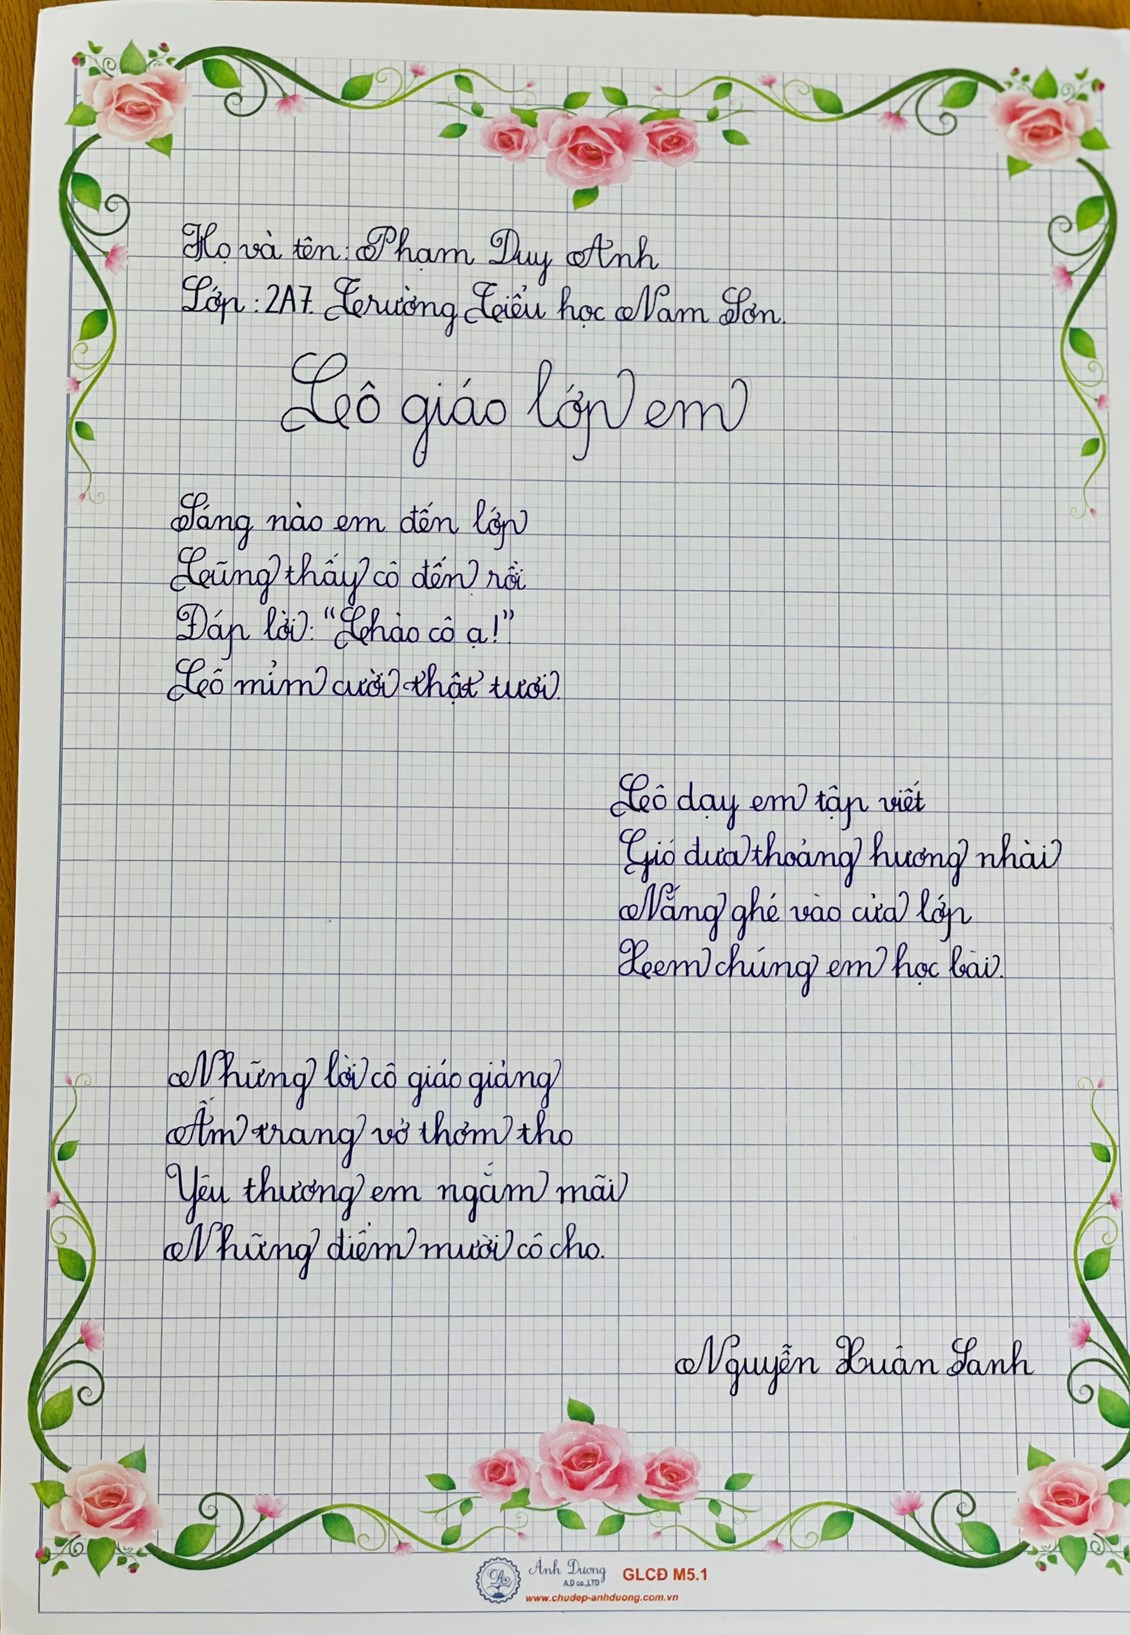 Họ và tên: Phạm Duy Anh
Lớp: 2A7. Trường Tiểu học Nam Sơn.
Cô giáo lớp em
Sáng nào em đến lớp
Cũng thấy cô đến rồi
Đáp lời: "Chào cô ạ!"
Cô mỉm cười thật tươi.
Cô dạy em tập viết
Gió đưa thoảng hương nhài
Nắng ghé vào cửa lớp
Xem chúng em học bài.
Những lời cô giáo giảng
Ấm trang vở thơm tho
Yêu thương em ngắm mãi
Những điểm mười cô cho.
Nguyễn Xuân Sanh
Anh Dương
A.D co.,LTD
GLCĐ M5.1
www.chudep-anhduong.com.vn